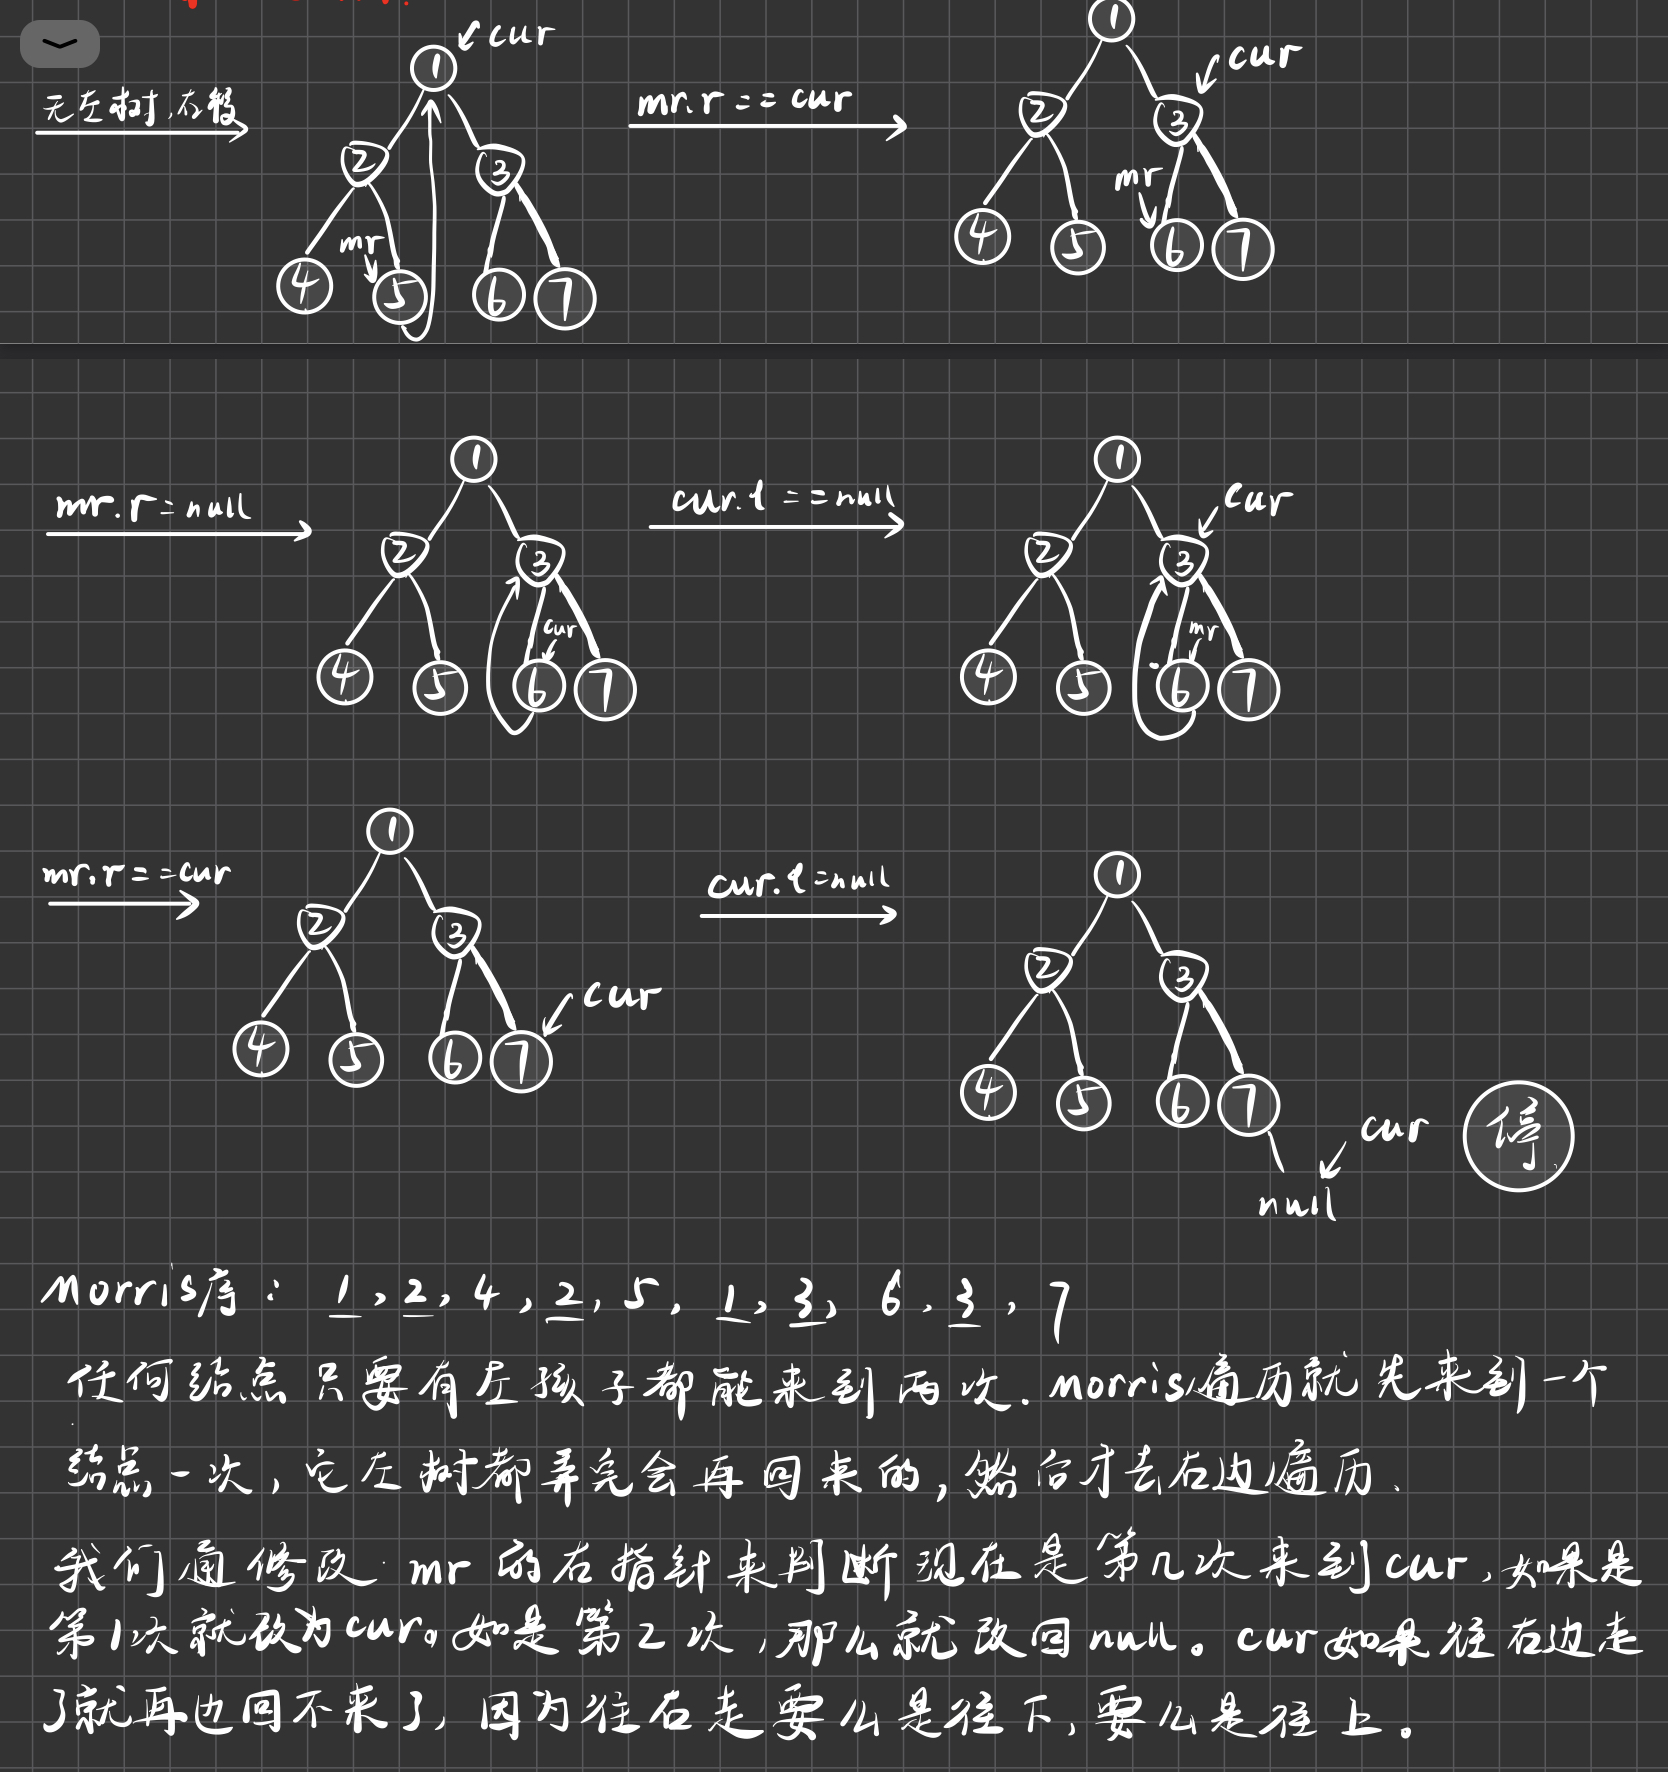 cur
1
无左树,右移
2
3
mr
4
5
6
7
mr.r==cur
1
cur
2
3
mr
4
5
6
7
mr.r=null
1
2
3
cur
4
5
6
7
cur.l==null
1
cur
2
3
mr
4
5
6
7
mr.r==cur
1
2
3
cur
4
5
6
7
cur.l=null
1
2
3
4
5
6
7
cur
停
null
morris序: 1,2,4,2,5,1,3,6,3,7
任何结点只要有左孩子都能来到两次.morris遍历就先来到一个
结点一次,它左树都弄完会再回来的,然后才去右边遍历.
我们通修改mr的右指针来判断现在是第几次来到cur,如果是
第1次就改为cur。如是第2次,那么就改回null。cur如果往右边走
了就再也回不来了,因为往右走要么是往下,要么是往上。